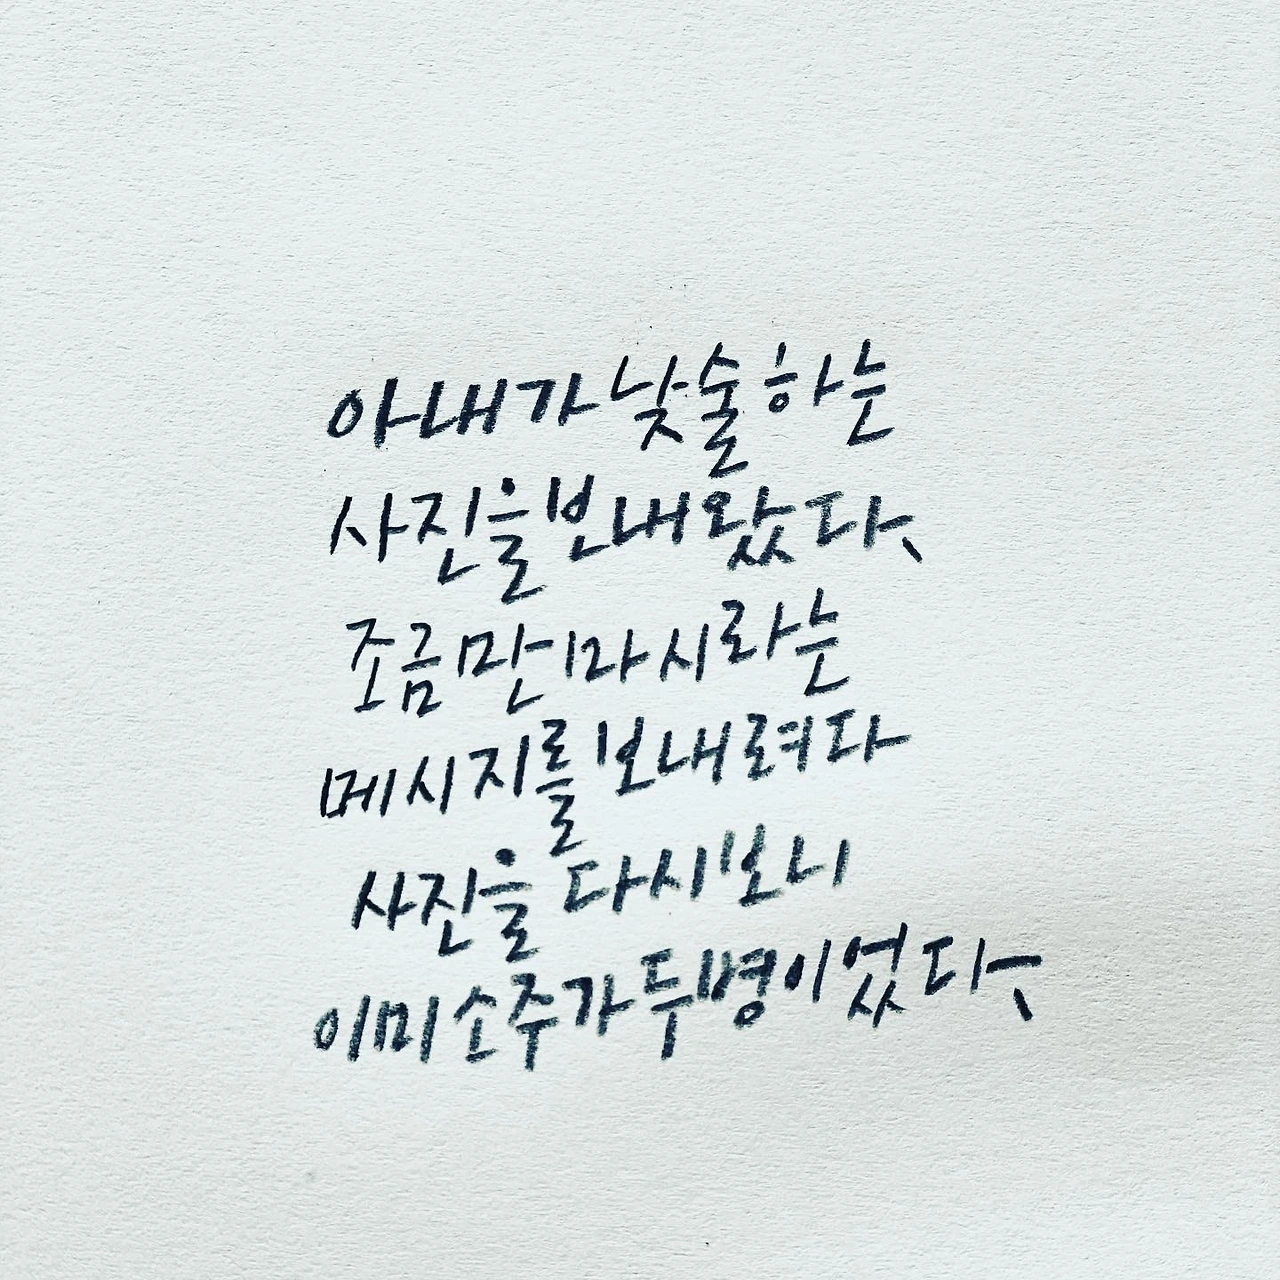 아내가 낮술 하는
사진을 보내왔다.
조금만 마시라는
메시지를 보내려다
사진을 다시 보니
이미 소주가 두 병이었다.